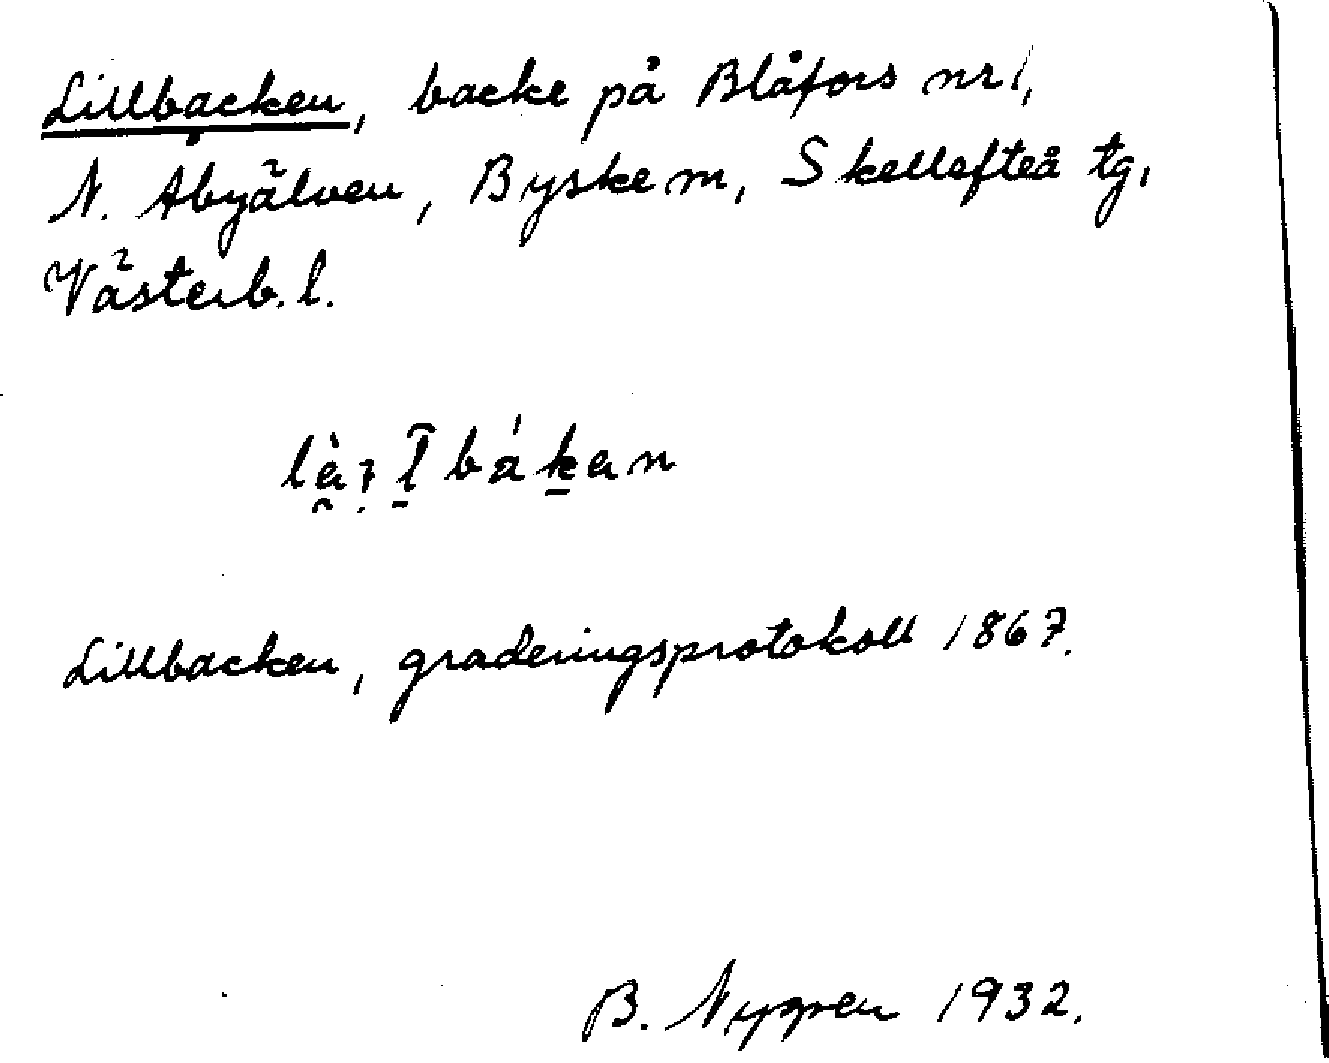 Lillbacken, backe på Blåfors nr 1,
N. Åbyälven, Byske m, Skellefteå tg,
Västerb. l.
Lillbacken, graderingsprotokoll 1867.
B. Nygren 1932.